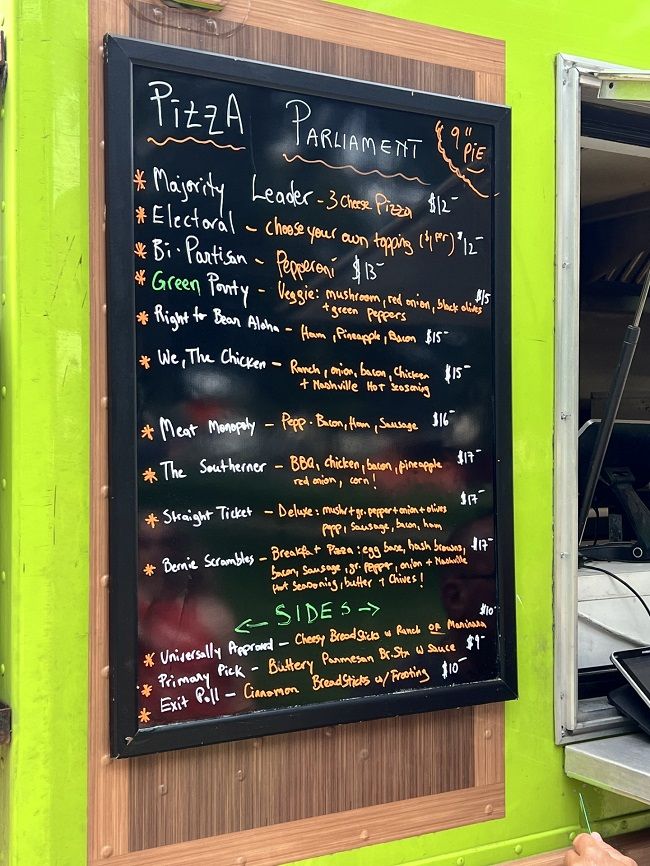 PizzA PARLIAMENT 9" PiE
* Majority Leader - 3 cheese Pizza $12-
* Electoral - choose your own topping ($1 per) $12-
* Bi-Partisan - Pepperoni $13-
* Green Party - Veggie: mushroom, red onion, black olives $15
+ green peppers
* Right to Bear Aloha - Ham, Pineapple, Bacon $15-
* We, The Chicken - Ranch, onion, bacon, chicken $15-
+ Nashville Hot Seasoning
* Meat Monopoly - Pepp. Bacon, Ham, Sausage $16-
* The Southerner - BBQ, chicken, bacon, pineapple $17-
red onion, corn!
$17-
* Straight Ticket - Deluxe: mushr + gr. pepper + onion + olives
pepp, sausage, bacon, ham
* Bernie Scrambles - Breakfast Pizza: egg base, hash browns, $17-
bacon, sausage, gr. pepper, onion + Nashville
Hot Seasoning, butter + Chives!
← SIDES →
* Universally Approved - Cheesy BreadSticks w Ranch or Marinara $10-
* Primary Pick - Buttery Parmesan Br. Stx w Sauce $9-
* Exit Poll - Cinnamon BreadSticks w/ Frosting $10-